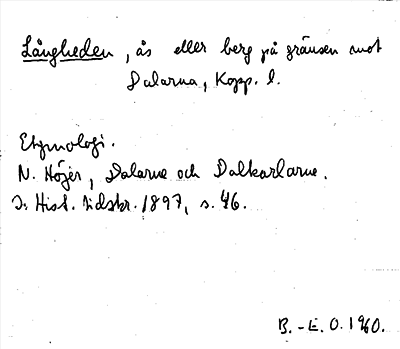 Långheden, ås eller berg på gränsen mot
Dalarna, Kopp. l.
Etymologi.
N. Höjer, Dalarne och Dalkarlarne.
I: Hist. tidskr. 1897, s. 46.
B.-E. O. 1960.